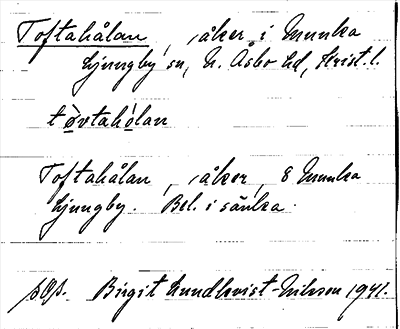 Toftahålan, åker i Munka
Ljungby sn, N. Åsbo hd, Krist. l.
tòvtahòlan
Toftahålan, åker, 8 Munka
Ljungby. Bel. i sänka.
Birgit Lundkvist-Nilsson 1941.